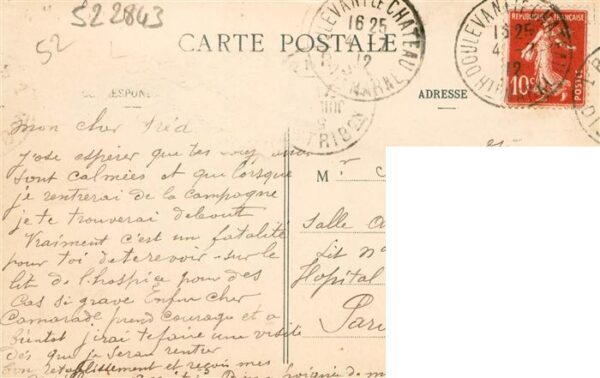 522843
52
CARTE POSTALE
DOULEVANT LE CHATEAU
16 25
12
HTE MARNE
DOULEVANT LE CHATEAU
16 25
4
12
RÉPUBLIQUE FRANÇAISE
10c
POSTES
CORRESPONDANCE
ADRESSE
DISTRIBON
mon cher Fréd
J'ose espérer que tes
sont calmées et que lorsque
je rentrerai de la campagne
je te trouverai debout
Vraiment c'est un fatalité
pour toi de te revoir sur le
lit de l'hospice pour des
cas si grave Enfin cher
Camarade prend courage et a
bientot j'irai te faire une visite
dès que je serau rentier
bon retablissement et reçois mes
M r
Salle
Lit No
Hopital
Par